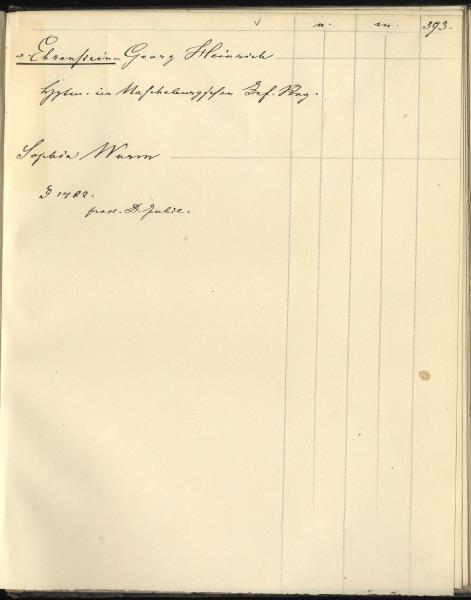 v n. m. 393.
v Ehrenstein Georg Heinrich
Hptm. im Maschelburgschen Inf. Reg.
Sophia Wurm
J 1722.
prod. D.